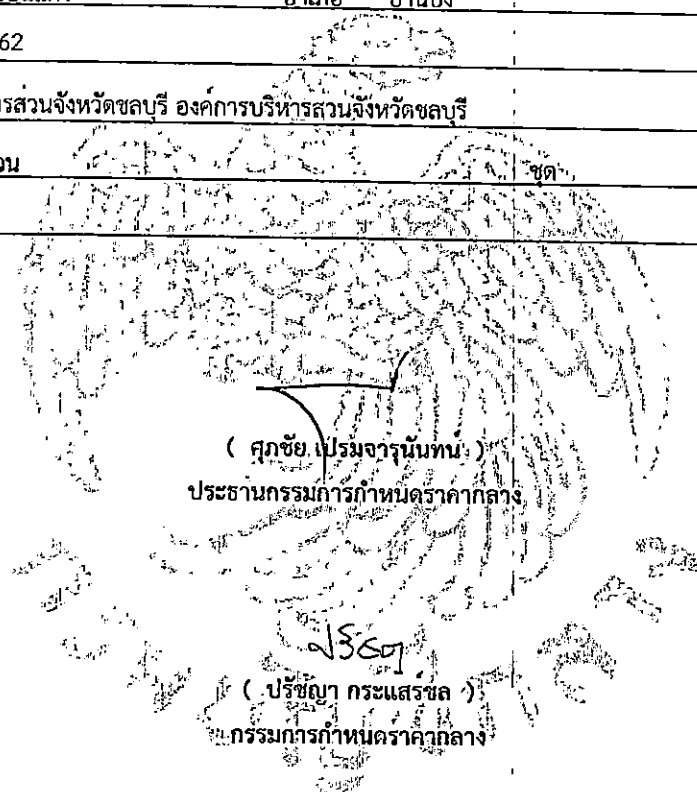 อำเภอ บ้านบึง
62
รส่วนจังหวัดชลบุรี องค์การบริหารส่วนจังหวัดชลบุรี
วน ชุด
( ศุภชัย เปรมจารุนันทน์ )
ประธานกรรมการกำหนดราคากลาง
( ปรัชญา กระแสร์ชล )
กรรมการกำหนดราคากลาง